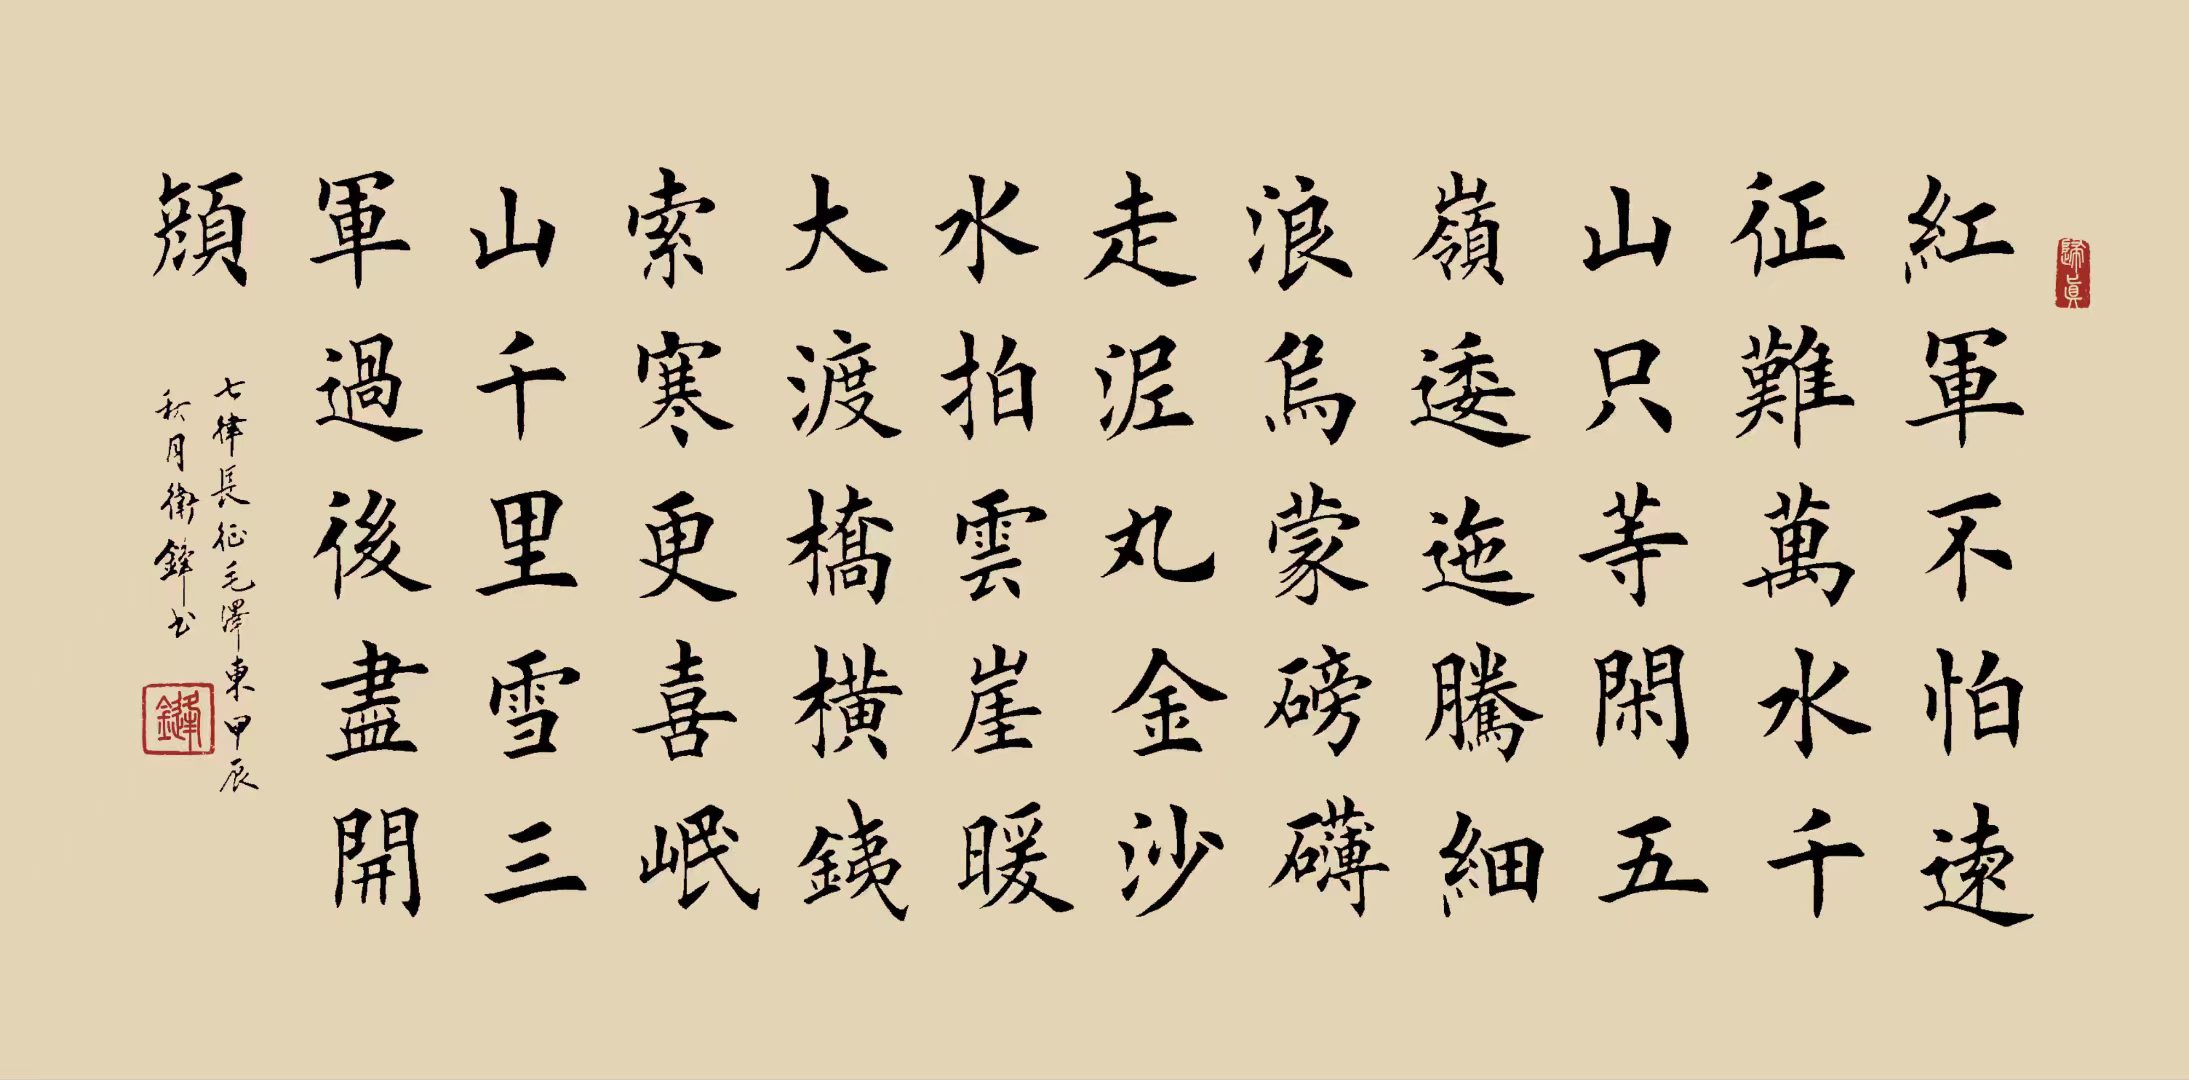 紅軍不怕遠
征難萬水千
山只等閑五
嶺逶迤騰細
浪烏蒙磅礴
走泥丸金沙
水拍雲崖暖
大渡橋橫鐵
索寒更喜岷
山千里雪三
軍過後盡開
顔
七律長征毛澤東甲辰
秋月衛鋒书
鋒